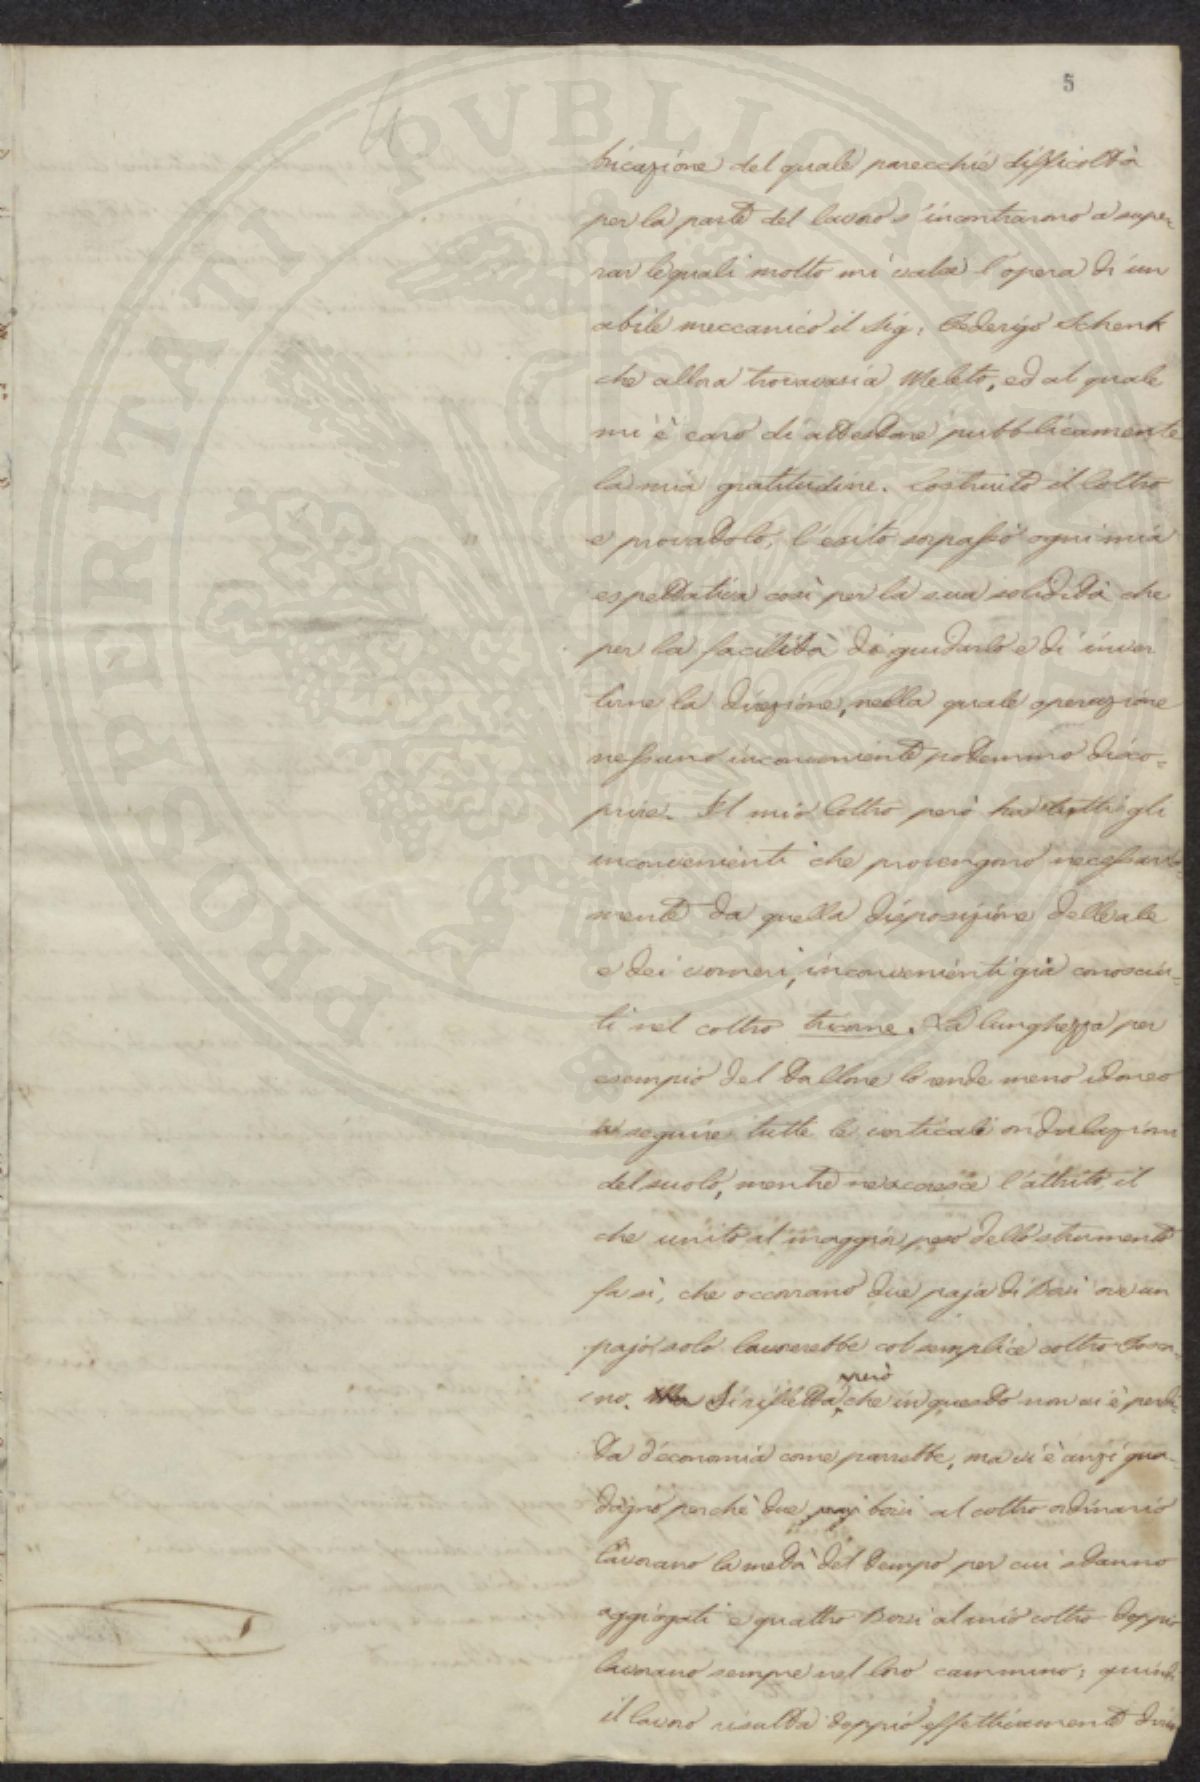 5
bricazione del quale parecchie difficoltà
per la parte del lavoro s'incontrarono a supe-
rar le quali molto mi valse l'opera di un
abile meccanico il Sig: Federigo Schenk
che allora trovavasi a Meleto, ed al quale
mi è caro di attestare pubblicamente
la mia gratitudine. Costruito il Coltro
e provatolo, l'esito sorpassò ogni mia
espettativa così per la sua solidità che
per la facilità di guidarlo e di inver
tirne la direzione, nella quale operazione
nessuno inconveniente potemmo disco-
prire. Il mio Coltro però ha tutti gli
inconvenienti che provengono necessaria-
mente da quella disposizione delle ale
e dei vomeri, inconvenienti già conosciu-
ti nel coltro tricorne. La lunghezza per
esempio del tallone lo rende meno idoneo
a seguire tutte le verticali ondulazioni
del suolo, mentre ne accresce l'attrito, il
che unito al maggior peso dello strumento
fa sì, che occorrano due paja di Bovi ove un
pajo solo lavorerebbe col semplice coltro Tosca-
no. Si rifletta però che in questo non vi è perdi-
ta d'economia come parrebbe, ma vi è anzi gua-
dagno perchè due bovi al coltro ordinario
lavorano la metà del tempo per cui stanno
aggiogati e quattro Bovi al mio coltro doppio
lavorano sempre nel loro cammino; quindi
il lavoro risulta doppio effettivamente
PROSPERITATI PVBLICAE